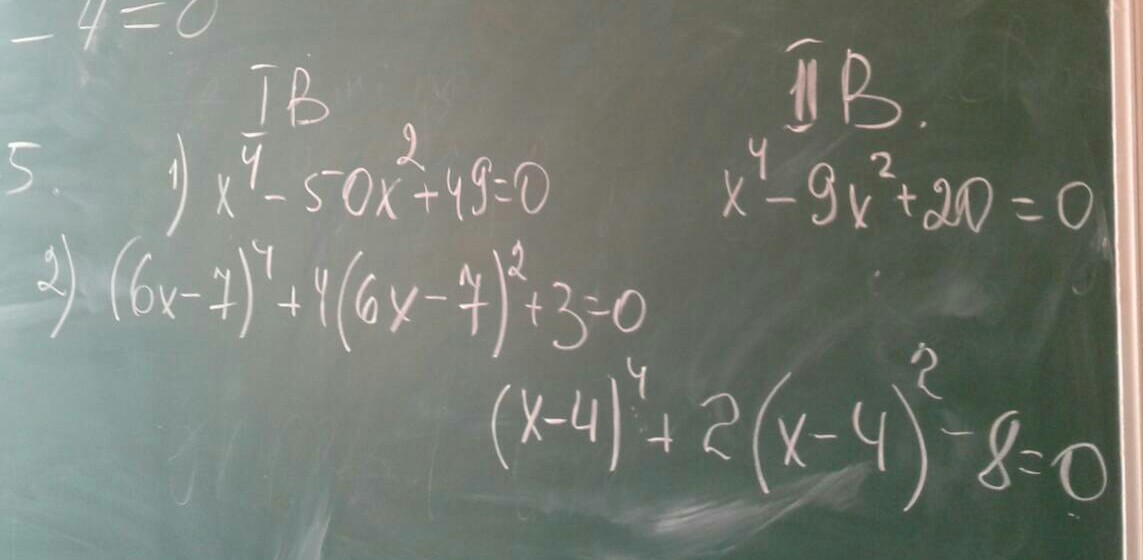 - 4=0
I B
II B.
5. 1) x⁴-50x²+49=0
x⁴-9x²+20=0
2) (6x-7)⁴+4(6x-7)²+3=0
(x-4)⁴+2(x-4)²-8=0